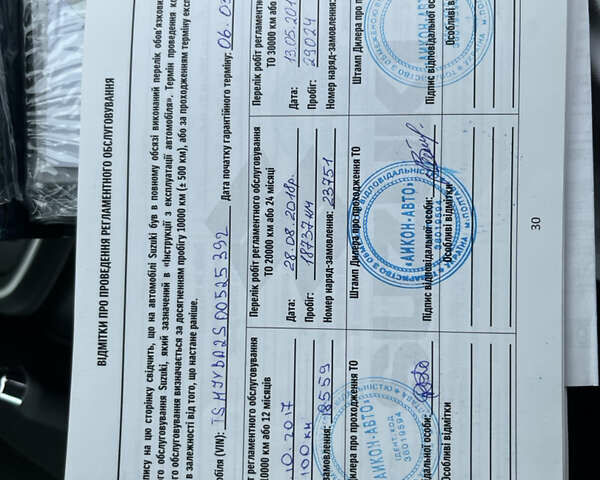 ВІДМІТКИ ПРО ПРОВЕДЕННЯ РЕГЛАМЕНТНОГО ОБСЛУГОВУВАННЯ
пису на цю сторінку свідчить, що на автомобілі Suzuki був в повному обсязі виконаний перелік обов'язкових
ого обслуговування Suzuki, який зазначений в «Інструкції з експлуатації автомобіля». Термін проведення
го обслуговування визначається за досягненням пробігу 10000 км (± 500 км), або за проходженням терміну
в залежності від того, що настане раніше.
обіля (VIN): TSMJYBA2S00525392 Дата початку гарантійного терміну: 06.03
регламентного обслуговування
10000 км або 12 місяців
10.2017
100 км
замовлення: 18559
Дилера про проходження ТО
«АИКОН-АВТО»
ІДЕНТ. КОД
38019594
ідальної особи:
Особливі відмітки
Перелік робіт регламентного обслуговування
ТО 20000 км або 24 місяці
Дата: 28.08.2018р.
Пробіг: 18737 км
Номер наряд-замовлення: 23751
Штамп Дилера про проходження ТО
«АИКОН-АВТО»
38019594
Підпис відповідальної особи:
Особливі відмітки
Перелік робіт регламентного
ТО 30000 км або
Дата: 13.05.201
Пробіг: 29024
Номер наряд-замовлення:
Штамп Дилера про п
«АИКОН-АВТО»
Підпис відповідальної особи:
Особливі відмітки
30